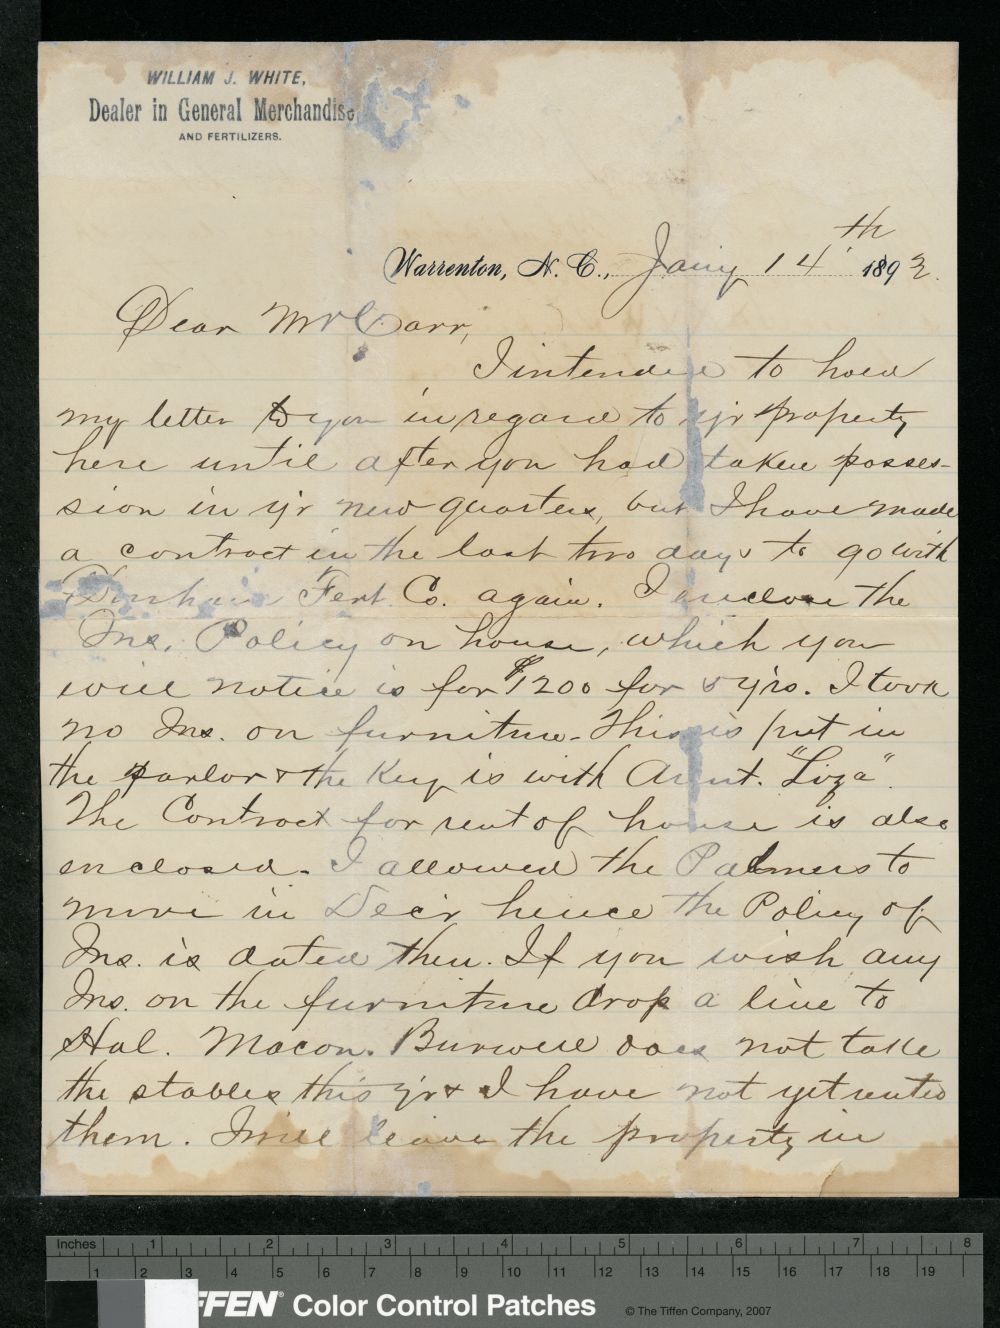 WILLIAM J. WHITE,
Dealer in General Merchandise
AND FERTILIZERS.
Warrenton, N. C., Jany 14th 1892.
Dear Mr Carr,
I intended to hold
my letter to you in regard to yr property
here until after you had taken posses-
sion in yr new quarters, but I have made
a contract in the last two days to go with
Durham Fert. Co. again. I enclose the
Ins. Policy on house, which you
will notice is for $1200 for 5 yrs. I took
no Ins. on furniture. This is put in
the parlor & the Key is with Aunt. "Liza".
The Contract for rent of house is also
enclosed. I allowed the Palmers to
move in Decr hence the Policy of
Ins. is dated then. If you wish any
Ins. on the furniture drop a line to
Hal. Macon. Burwell does not take
the stables this yr & I have not yet rented
them. I will leave the property in
Inches 1 2 3 4 5 6 7 8
1 2 3 4 5 6 7 8 9 10 11 12 13 14 15 16 17 18 19
FFEN® Color Control Patches © The Tiffen Company, 2007